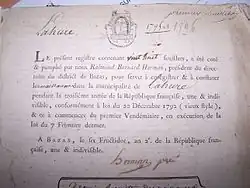 Lahure
premier
LE présent registre contenant vingt huit feuillets, a été coté
& paraphé par nous Raimond Bernard Herman, président du directoire
du district de Bazas, pour servir à enregistrer & à constater
les dans la municipalité de Lahure
pendant la troisième année de la République française, une &
indivisible, conformément à loi du 20 Décembre 1792 (vieux style),
et ce à commencer du premier Vendémiaire, en exécution de la
loi du 7 Frimaire dernier.
A BAZAS, le Fructidor, an 2e. de la République fran-
çaise, une & indivisible.
herman